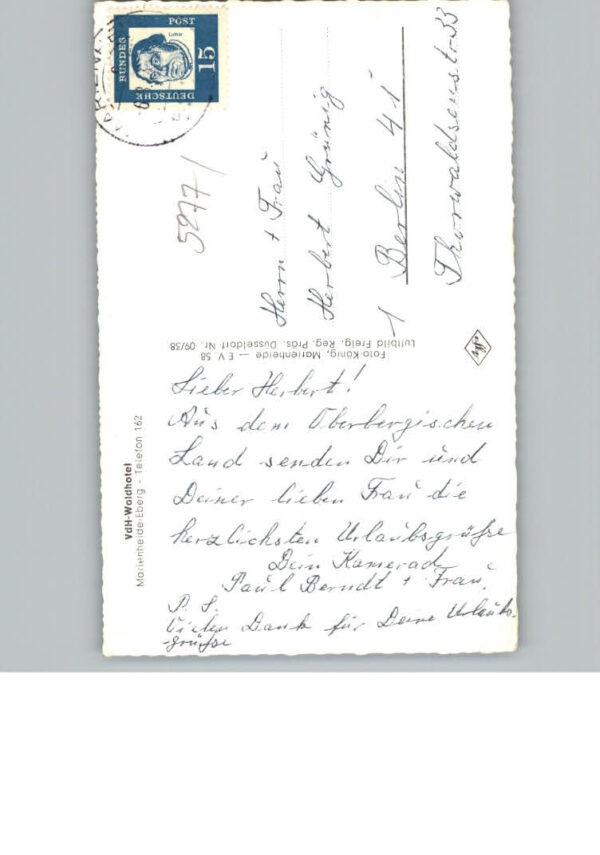 DEUTSCHE
BUNDES
POST
15
Luther
5277/
Herrn + Frau
Herbert Grünig
1 Berlin 41
Thorwaldsenstr. 33
Foto-König, Marienheide — E V 58
Luftbild Freig. Reg. Präs. Düsseldorf Nr. 09/58
VdH-Waldhotel
Marienheide-Eberg - Telefon 162
Lieber Herbert!
Aus dem Oberbergischen
Land senden Dir und
Deiner lieben Frau die
herzlichsten Urlaubsgrüße
Dein Kamerad
Paul Berndt + Frau.
P. S.
Vielen Dank für Deine Urlaubs-
grüße